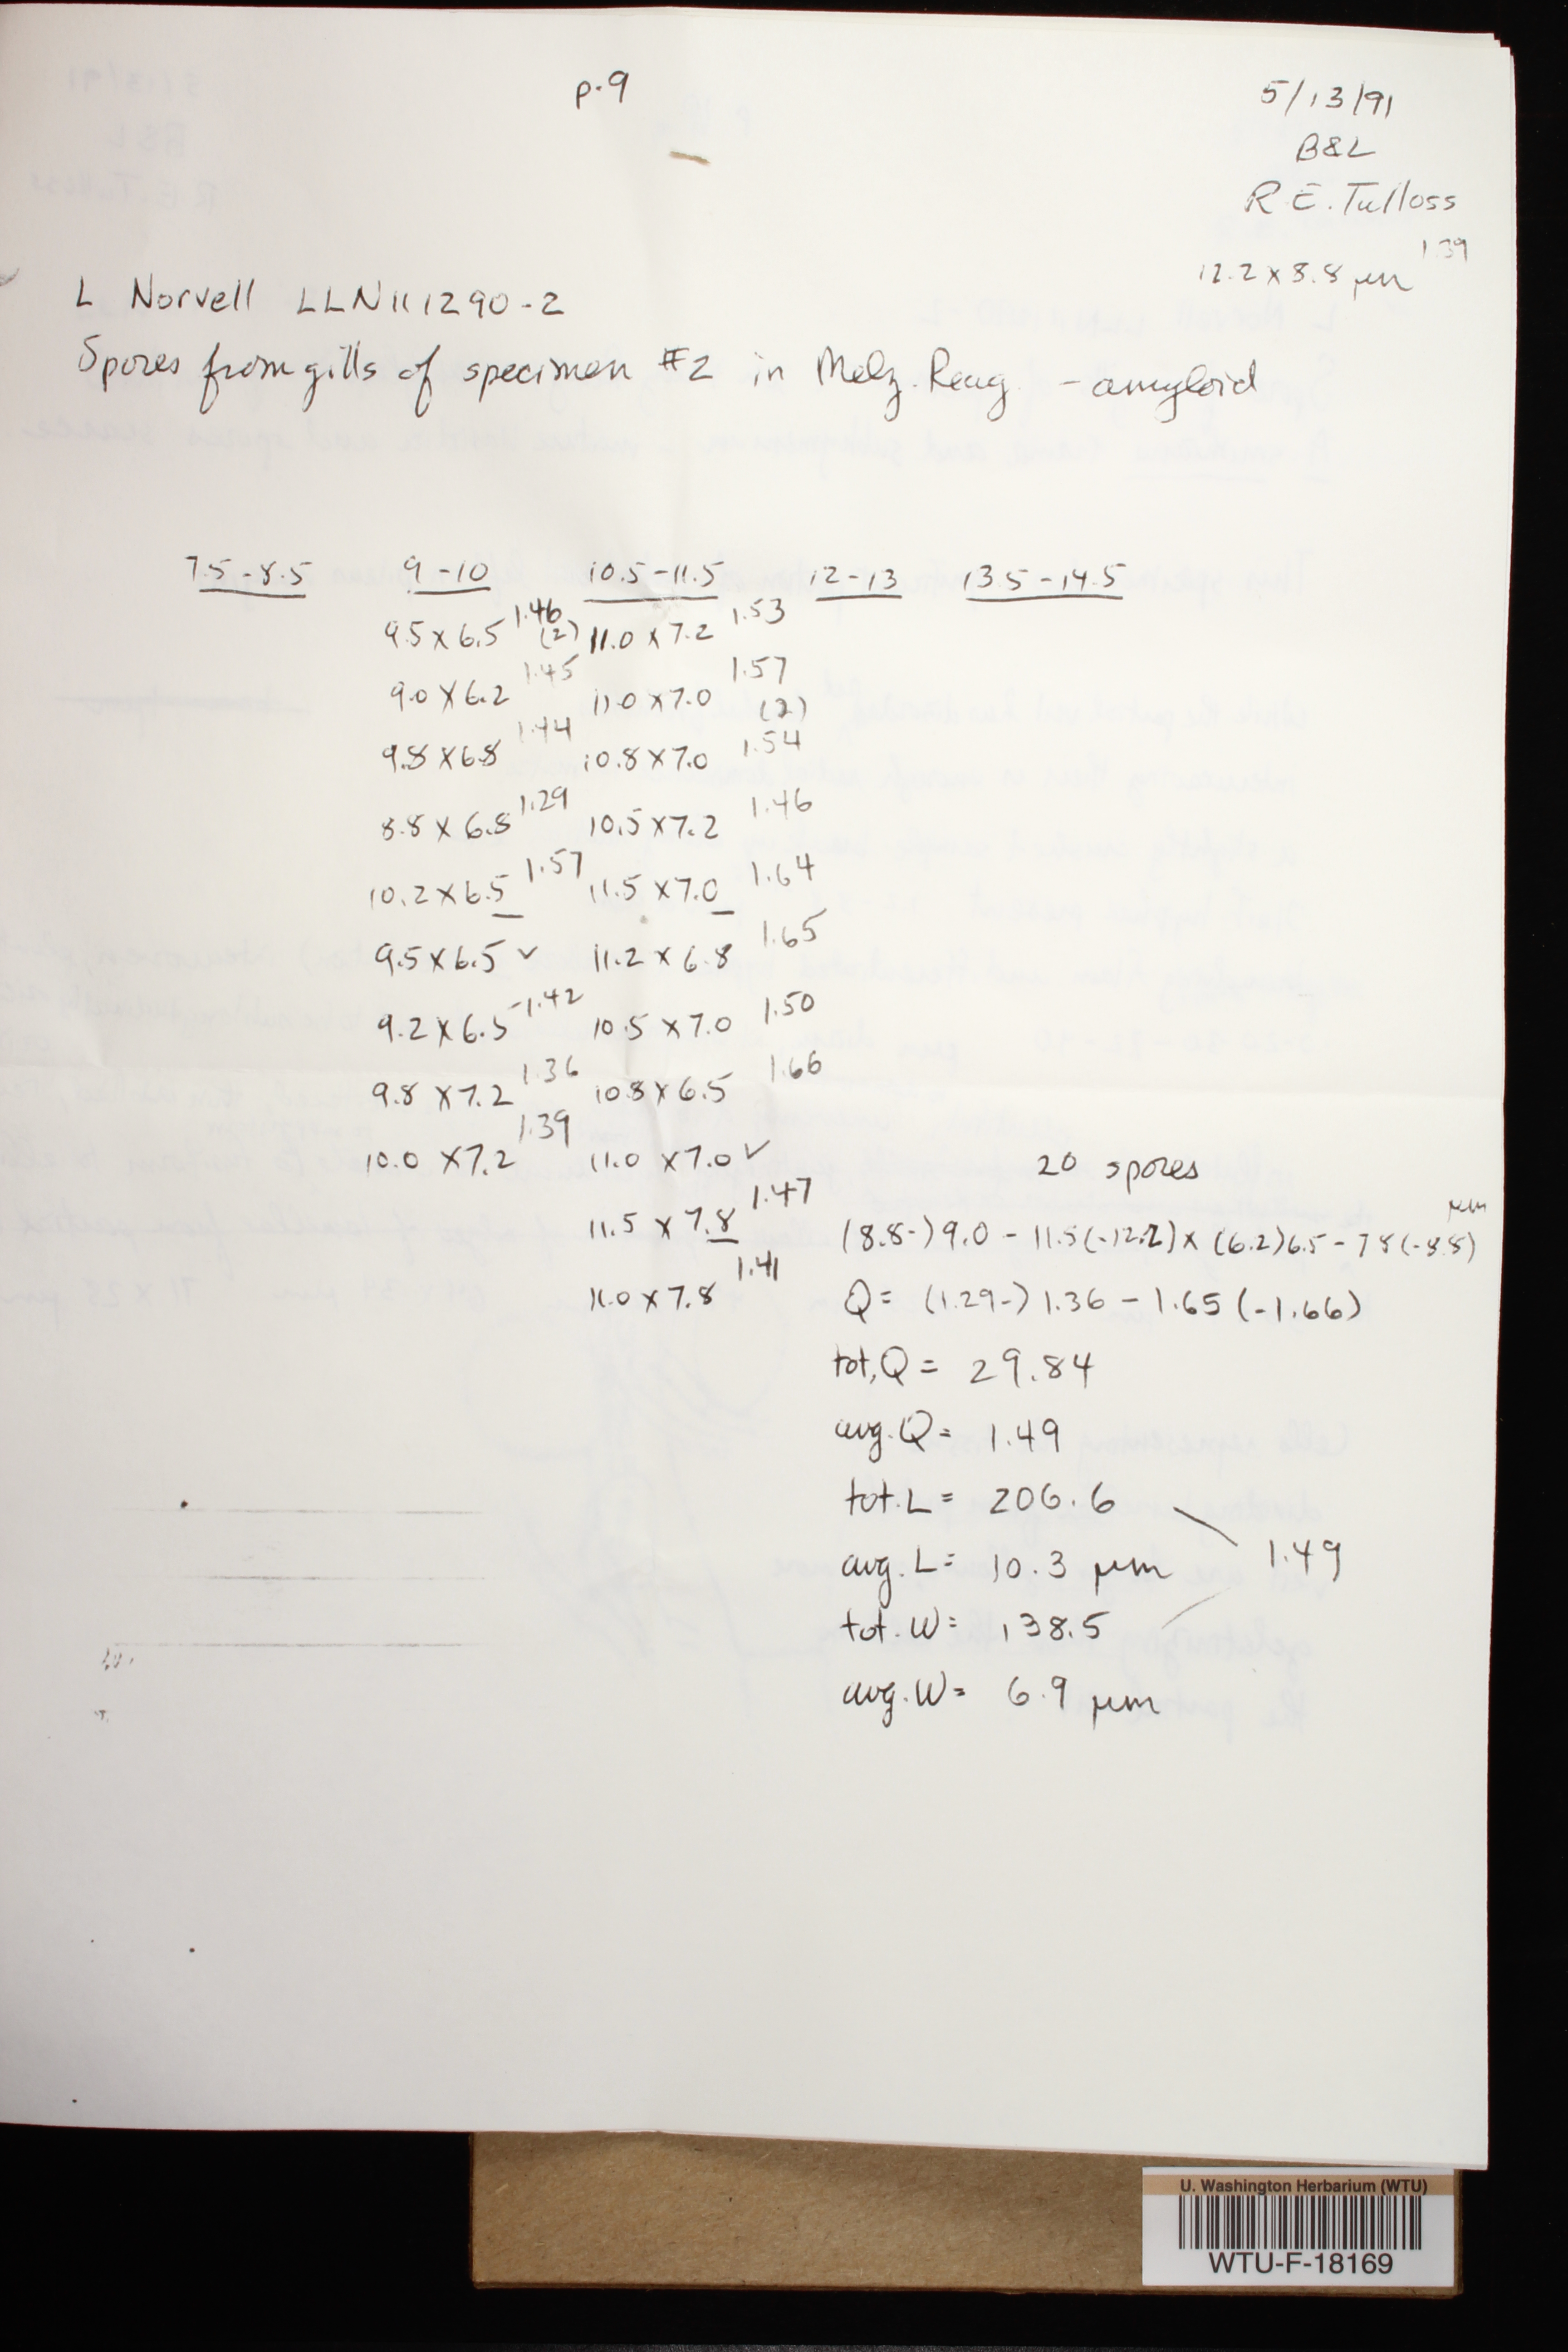 p.9
5/13/91
B&L
R.E. Tulloss
12.2 x 8.8 µm 1.39
L Norvell LLN111290-2
Spores from gills of specimen #2 in Melz. Reag. - amyloid
7.5 - 8.5 9 - 10 10.5 - 11.5 12 - 13 13.5 - 14.5
9.5 x 6.5 1.46 (2) 11.0 x 7.2 1.53
9.0 x 6.2 1.45 11.0 x 7.0 1.57 (2)
9.8 x 6.8 1.44 10.8 x 7.0 1.54
8.8 x 6.8 1.29 10.5 x 7.2 1.46
10.2 x 6.5 1.57 11.5 x 7.0 1.64
9.5 x 6.5 ✓ 11.2 x 6.8 1.65
9.2 x 6.5 1.42 10.5 x 7.0 1.50
9.8 x 7.2 1.36 10.8 x 6.5 1.66
10.0 x 7.2 1.39 11.0 x 7.0 ✓
11.5 x 7.8 1.47
11.0 x 7.8 1.41
20 spores
(8.8-) 9.0 - 11.5 (-12.2) x (6.2) 6.5 - 7.8 (-8.8) µm
Q = (1.29-) 1.36 - 1.65 (-1.66)
tot. Q = 29.84
avg. Q = 1.49
tot. L = 206.6
avg. L = 10.3 µm 1.49
tot. W = 138.5
avg. W = 6.9 µm
U. Washington Herbarium (WTU)
WTU-F-18169